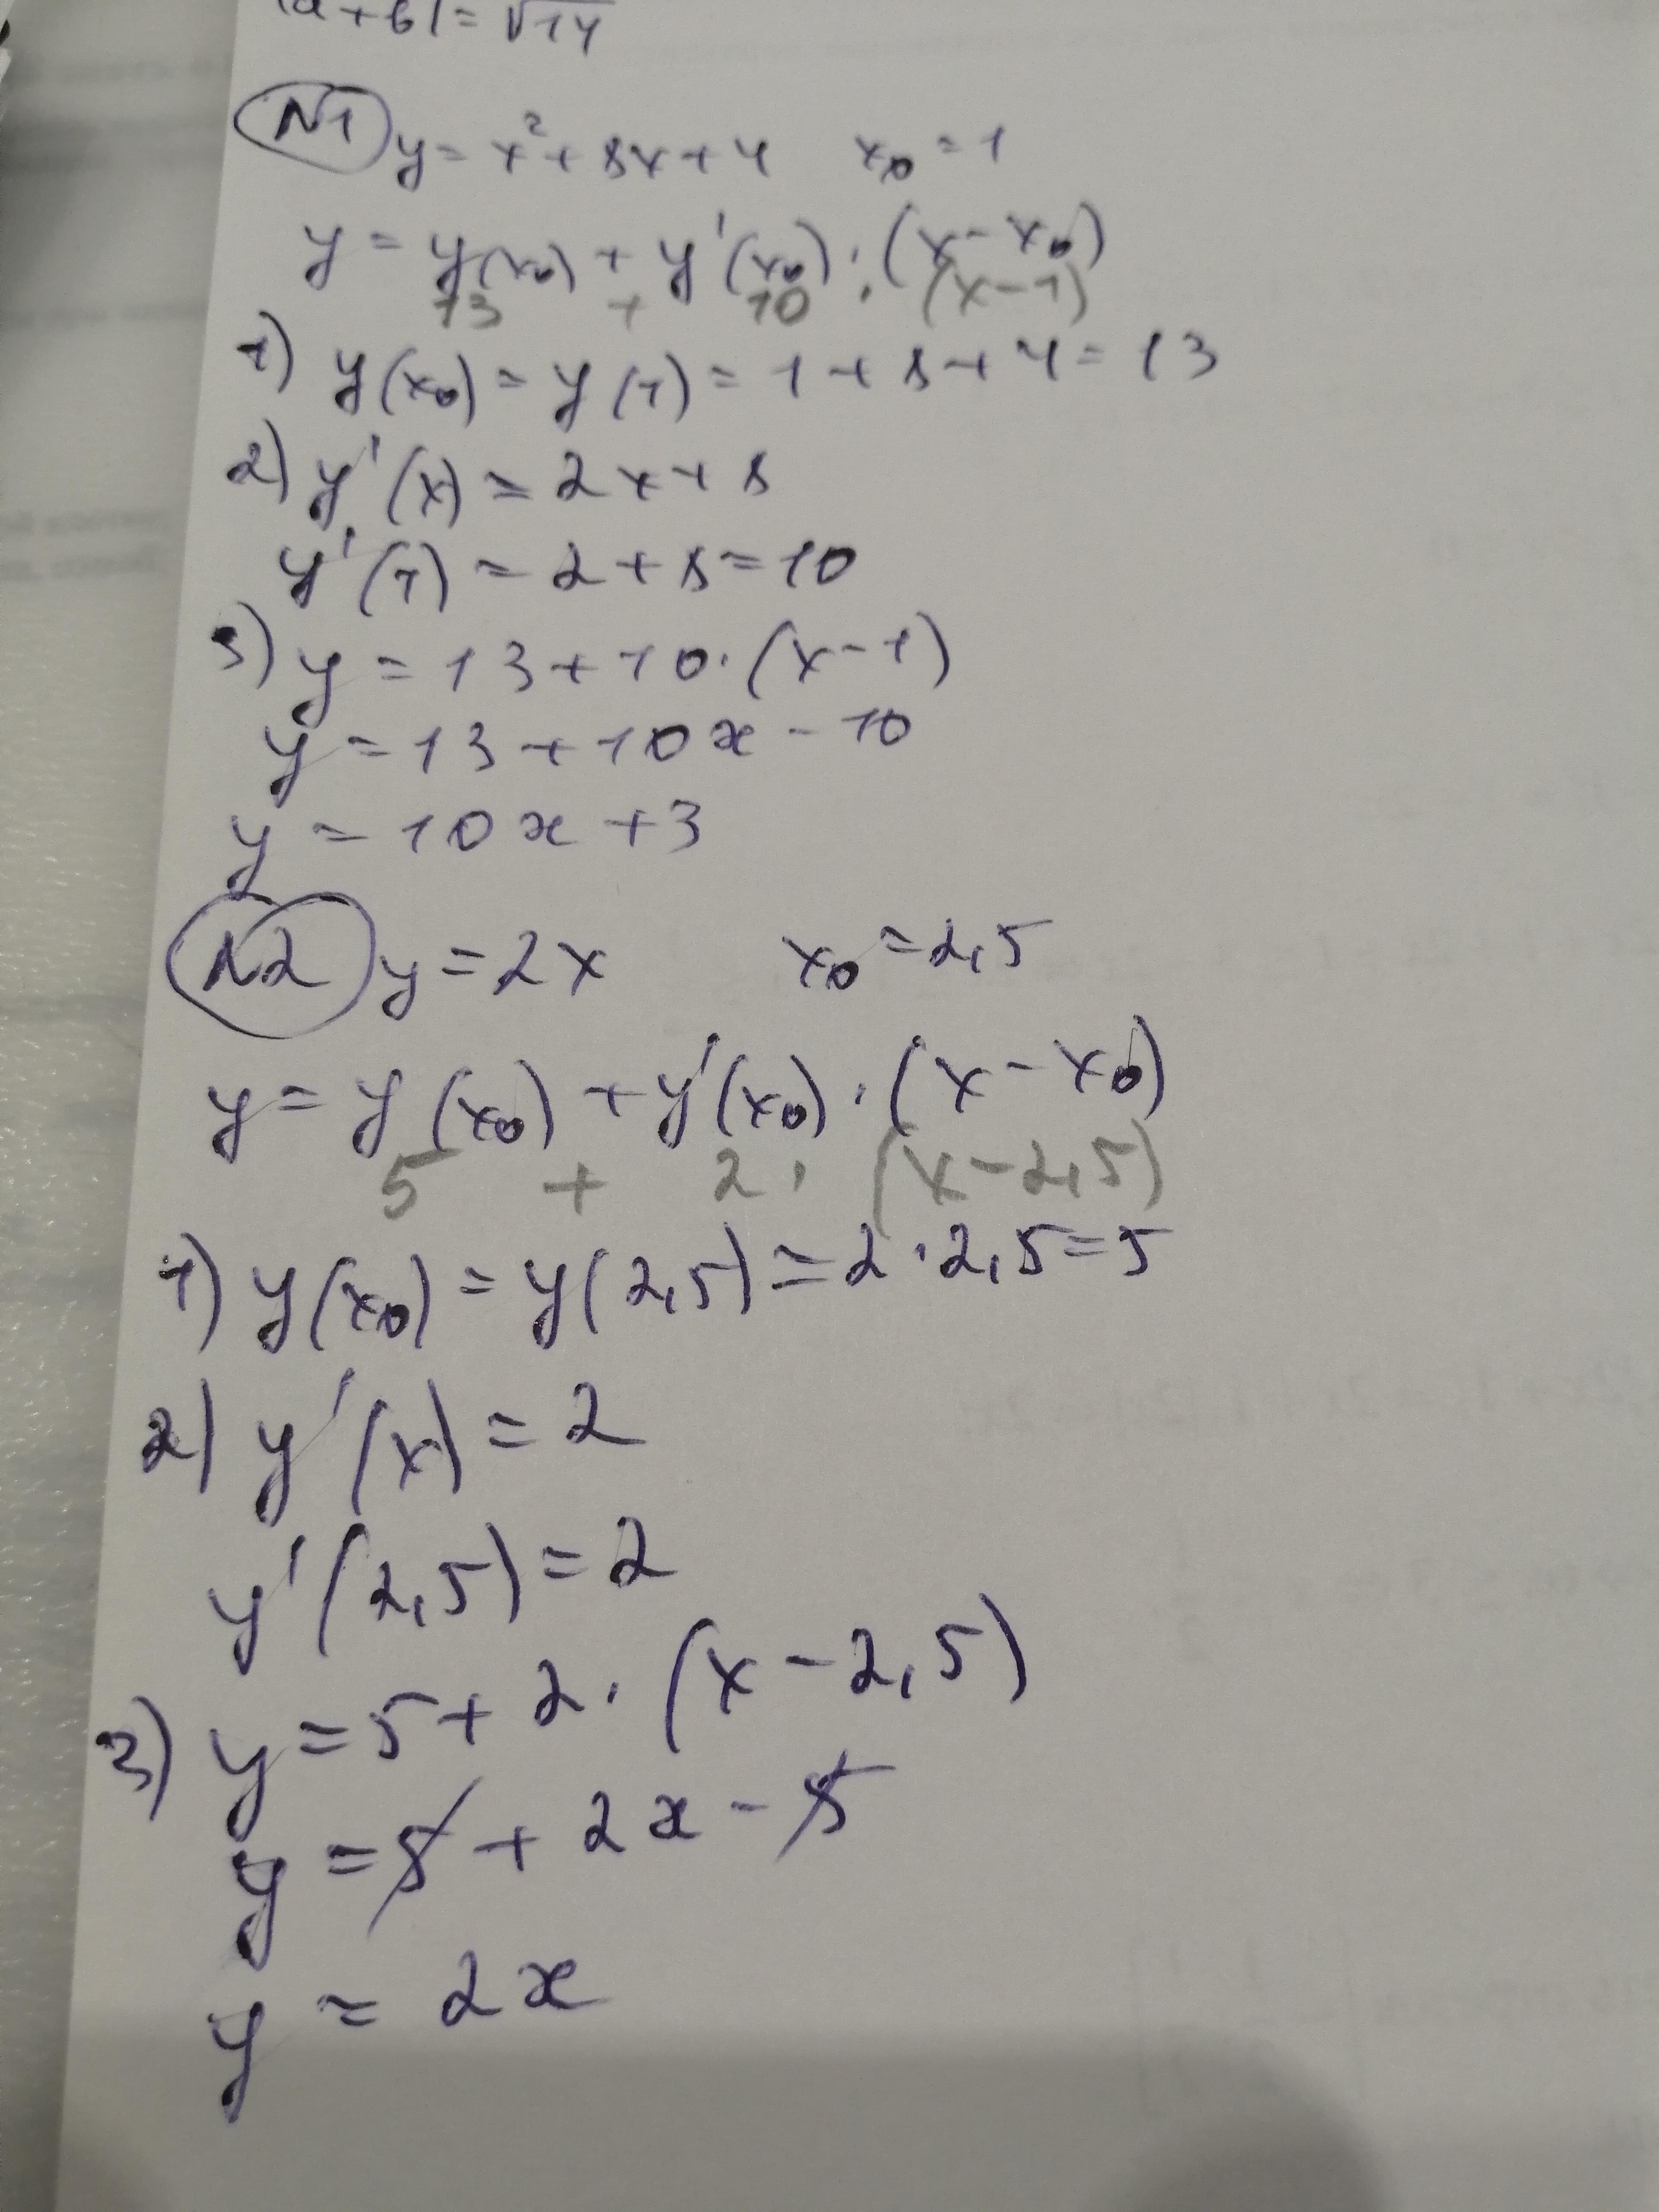 |a + b| = √14
N1 y = x² + 8x + 4 x₀ = 1
y = y(x₀) + y'(x₀) · (x - x₀)
13 + 10 · (x - 1)
1) y(x₀) = y(1) = 1 + 8 + 4 = 13
2) y'(x) = 2x + 8
y'(1) = 2 + 8 = 10
3) y = 13 + 10 · (x - 1)
y = 13 + 10x - 10
y = 10x + 3
N2 y = 2x x₀ = 2,5
y = y(x₀) + y'(x₀) · (x - x₀)
5 + 2 · (x - 2,5)
1) y(x₀) = y(2,5) = 2 · 2,5 = 5
2) y'(x) = 2
y'(2,5) = 2
3) y = 5 + 2 · (x - 2,5)
y = 5 + 2x - 5
y = 2x